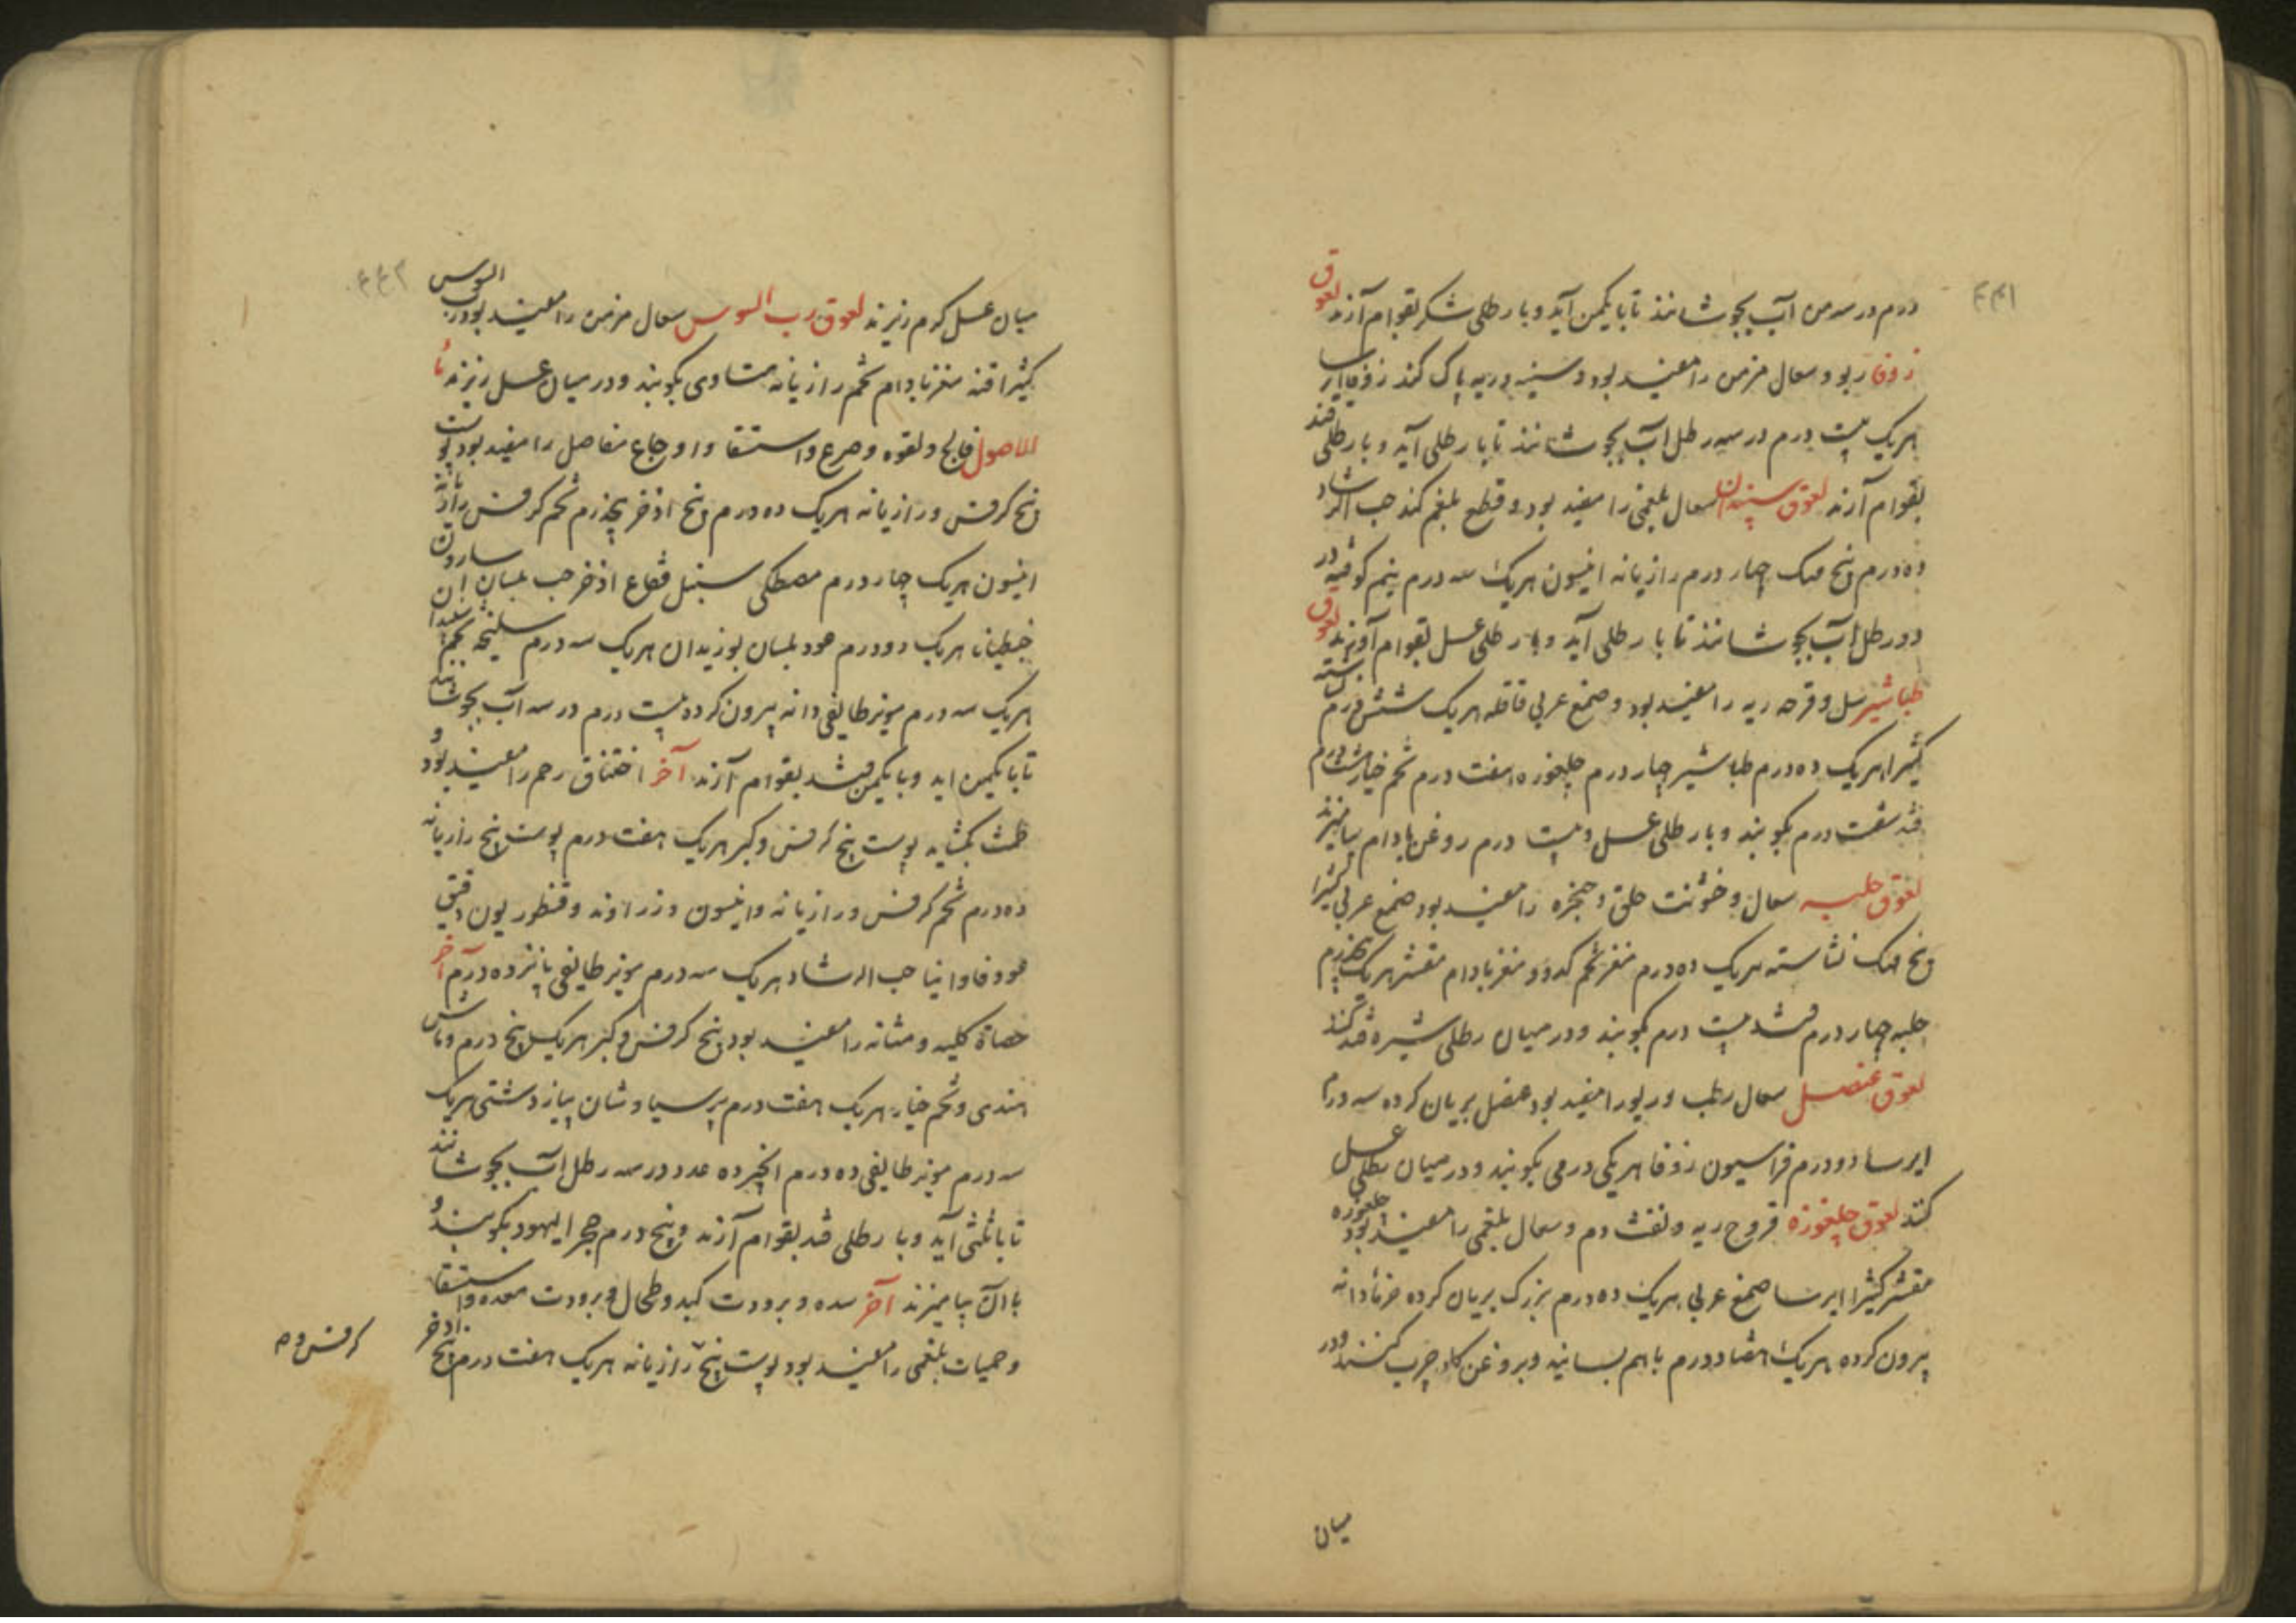 درم در سه من آب بجوشانند تا با یکمن آید و با رطلی شکر بقوام آرند لعوق
زوفا ربو و سعال مزمن را مفید بود و سینه و ریه پاک کند زوفا ایرسا
هریک بیست درم در سه رطل آب بجوشانند تا با رطلی آید و با رطلی قند
بقوام آرند لعوق سپندان سعال بلغمی را مفید بود و قطع بلغم کند حب الرشاد
ده درم بیخ مهک چهار درم رازیانه انیسون هریک سه درم نیم کوفته در
دو رطل آب بجوشانند تا با رطلی آید و با رطلی عسل بقوام آورند لعوق
طباشیر سل و قرحه ریه را مفید بود صمغ عربی قاقله هریک شش درم
کثیرا هریک ده درم طباشیر چهار درم چلغوزه هفت درم تخم خیار درم
قند شصت درم بکوبند و با رطلی عسل و بیست درم روغن بادام بیامیزند
لعوق حلبه سعال و خشونت حلق و حنجره را مفید بود صمغ عربی کثیرا
بیخ مهک نشاسته هریک ده درم مغز تخم کدو و مغز بادام مقشر هریک پنجدرم
حلبه چهار درم قند بیست درم بکوبند و در میان رطلی شیره قند کنند
لعوق عنصل سعال رطب و ربو را مفید بود عنصل بریان کرده سه درم
ایرسا دو درم فراسیون زوفا هریکی درمی بکوبند و در میان رطلی عسل
کنند لعوق چلغوزه قروح ریه و نفث دم و سعال بلغمی را مفید بود چلغوزه
مقشر کثیرا ایرسا صمغ عربی هریک ده درم بزرک بریان کرده خرما دانه
بیرون کرده هریک هفتاد درم با هم بسایند و بروغن کاو چرب کنند و در
میان
میان عسل کرم ریزند لعوق رب السوس سعال مزمن را مفید بود رب السوس
کثیرا قند مغز بادام تخم رازیانه متساوی بکوبند و در میان عسل ریزند ما
الاصول فالج و لقوه و صرع و استسقا و اوجاع مفاصل را مفید بود پوست
بیخ کرفس و رازیانه هریک ده درم بیخ اذخر پنجدرم تخم کرفس رازیانه
انیسون هریک چهار درم مصطکی سنبل فقاع اذخر حب بلسان اسارون
جنطیانا هریک دو درم عود بلسان بوزیدان هریک سه درم سلیخه
هریک سه درم مویز طایفی دانه بیرون کرده بیست درم در سه آب بجوشانند
تا با یکمن اید و با یکمن قند بقوام آرند آخر اختناق رحم را مفید بود و
طمث بکشاید پوست بیخ کرفس و کبر هریک هفت درم پوست بیخ رازیانه
ده درم تخم کرفس و رازیانه و انیسون و زراوند و قنطوریون دقیق
عود فاوانیا حب الرشاد هریک سه درم مویز طایفی پانزده درم آخر
حصاة کلیه و مثانه را مفید بود بیخ کرفس و کبر هریک پنج درم و ماش
هندی و تخم خیار هریک هفت درم پرسیاوشان پیاز دشتی هریک
سه درم مویز طایفی ده درم انجیر ده عدد در سه رطل آب بجوشانند
تا با ثلثی آید و با رطلی قند بقوام آرند و پنج درم حجر الیهود بکوبند و
با آن بیامیزند آخر سده و برودت کبد و طحال و برودت معده و استسقا
و حمیات بلغمی را مفید بود پوست بیخ رازیانه هریک هفت درم بیخ اذخر